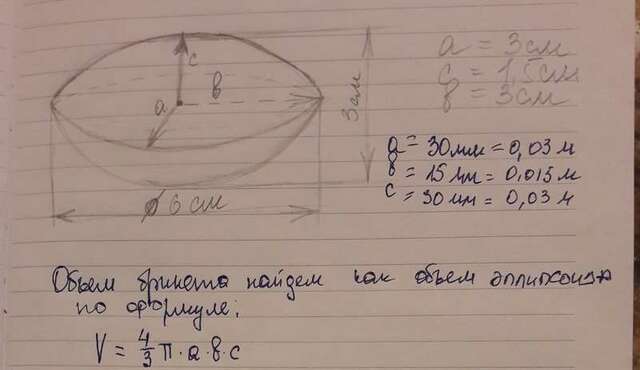 c
a
в
3 см
⌀ 6 см
a = 3 см
c = 1,5 см
в = 3 см
a = 30 мм = 0,03 м
в = 15 мм = 0,015 м
c = 30 мм = 0,03 м
Объем брикета найдем как объем эллипсоида
по формуле:
V = 4/3 π · a · в · c